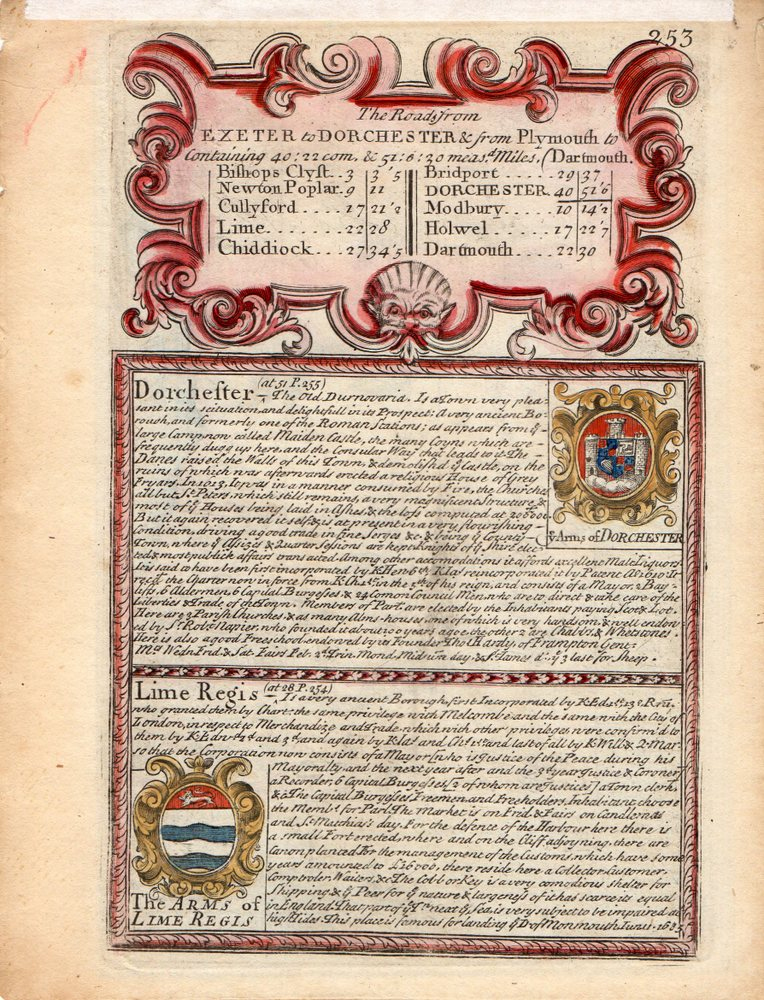 253
The Roads from
EXETER to DORCHESTER & from Plymouth to
Containing 40:22 com. & 51:6:30 meas.d Miles. (Dartmouth.
Bishops Clyst.. 3 3'5 Bridport ...... 29 37
Newton Poplar. 9 11 DORCHESTER 40 51'6
Cullyford .... 17 21'2 Modbury ...... 10 14'2
Lime ...... 22 28 Holwel .... 17 22'7
Chiddiock ... 27 34'5 Dartmouth ..... 22 30
Dorchester (at 51 P. 255)
The Old Durnovaria. Is a Town very plea
sant in its scituation, and delightfull in its Prospect; a very ancient Bo-
rough, and formerly one of the Roman Stations; as appears from ye
large Camp now called Maiden Castle, the many Coyns which are
frequently dugg up here, and the Consular Way that leads to it. The
Danes raised the Walls of this Town, & demolish'd ye Castle, on the
ruins of which was afterwards erected a religious House of Grey
Fryars. In 1613, It was in a manner consumed by Fire, the Churches
all but St. Peters, which still remains, a very magnificent Structure, &
most of ye Houses being laid in Ashes, & the loss computed at 200000
But it again recovered it self, & is at present in a very flourishing
Condition, driving a good trade in fine Serges &c. & being ye County
Town, where ye Assizes & Quarter Sessions are kept, Knights of ye Shire elec-
ted & most publick affairs transacted. Among other accomodations it affords excellent Male Liquors
It is said to have been first incorporated by K. Hen. 6th. K. Jas. reincorporated it by Patent Ao. 1610. It
recd. the Charter now in force from K. Chas. in the 5th of his reign, and consists of a Mayor, 2 Bay-
liffs, 6 Aldermen, 6 Capital Burgesses, & 24 Comon Council Men, who are to direct & take care of the
liberties & Trade of the Town. Members of Part. are elected by the Inhabitants paying Scot & Lot.
Here are 3 Parish Churches, & as many Alms-houses, one of which is very handsom, & well endow-
ed by Sr. Robt. Napier who founded it about 70 years agoe, the other 2 are Chubbs, & Whetstones.
Here is also a good Freeschool endowed by its Founder Tho. Hardy, of Frampton Gent.
Mts. Wedn. Frid. & Sat. Fairs Feb. 2d. Trin. Mond. Midsumr. day. & St. James do. ye 3 last for Sheep.
ye Arms of DORCHESTER
Lime Regis (at 28 P. 254)
Is a very ancient Borough, first Incorporated by K. Ed. 1st. 13o. R. vizt.
who granted them by Chart. the same privilege with Melcombe and the same with the City of
London, in respect to Merchandize and Trade, which with other privileges, were confirm'd to
them by K. Edw. 2d. and 3d. and again by K. Jas. and Chs. 1st. and last of all by K. Will. & Q. Mar.
so that the Corporation now consists of a Mayor (who is Justice of the Peace during his
Mayoralty and the next year after and the 3d. year Justice & Coroner)
a Recorder, 6 Capital Burgesses, [2 of whom are Justices] a Town clerk,
&c. The Capital Burgesses Freemen and Freeholders Inhabitant, choose
the Membs. for Parlt. The market is on Frid. & Fairs on Candlemas
and St. Matthias's day. For the defence of the Harbour here there is
a small Fort erected, where and on the Cliff adjoyning, there are
Canon planted. For the management of the Customs, which have some
years amounted to £16000, there reside here a Collector, Customer,
Comptroler, Waiters, &c. The Cobb or Key is a very comodious shelter for
Shipping & ye Peer for ye nature & largeness of it has scarce its equal
in England. That part of ye Tn. next ye Sea, is very subject to be impaired at
high Tides. This place is famous for landing ye D. of Monmouth June 11. 1685
The ARMS of
LIME REGIS